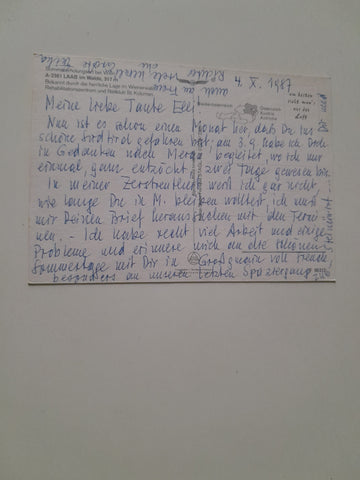 4. X. 1987
A-2381 LAAB im Walde,
Bekannt durch die herrliche Lage im Wienerwald
Rehabilitationszentrum und Reitklub St. Kolumban
Niederösterreich
Österreich
Austria
Autriche
Meine liebe Tante Elli!
Nun ist es schon einen Monat her, daß Du ins
schöne Südtirol gefahren bist, am 3.9. habe ich Dich
in Gedanken nach Meran begleitet, wo ich nur
einmal, ganz entzückt, zwei Tage gewesen bin.
In meiner Zerstreutheit weiß ich gar nicht,
wie lange Du in M. bleiben wolltest, ich muß
mir Deinen Brief heraussuchen mit den Termi-
nen. - Ich habe recht viel Arbeit und einige
Probleme und erinnere mich an die schönen
Sommertage mit Dir in Großgmain voll Freude,
besonders an unseren letzten Spaziergang